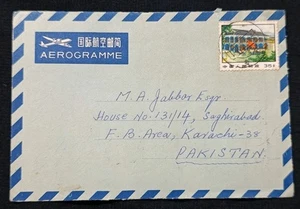 国际航空邮简
AEROGRAMME
中国人民邮政 35分
M. A. Jabbar Esqr
House No: 131/14, Saghirabad
F. B. Area, Karachi-38
PAKISTAN